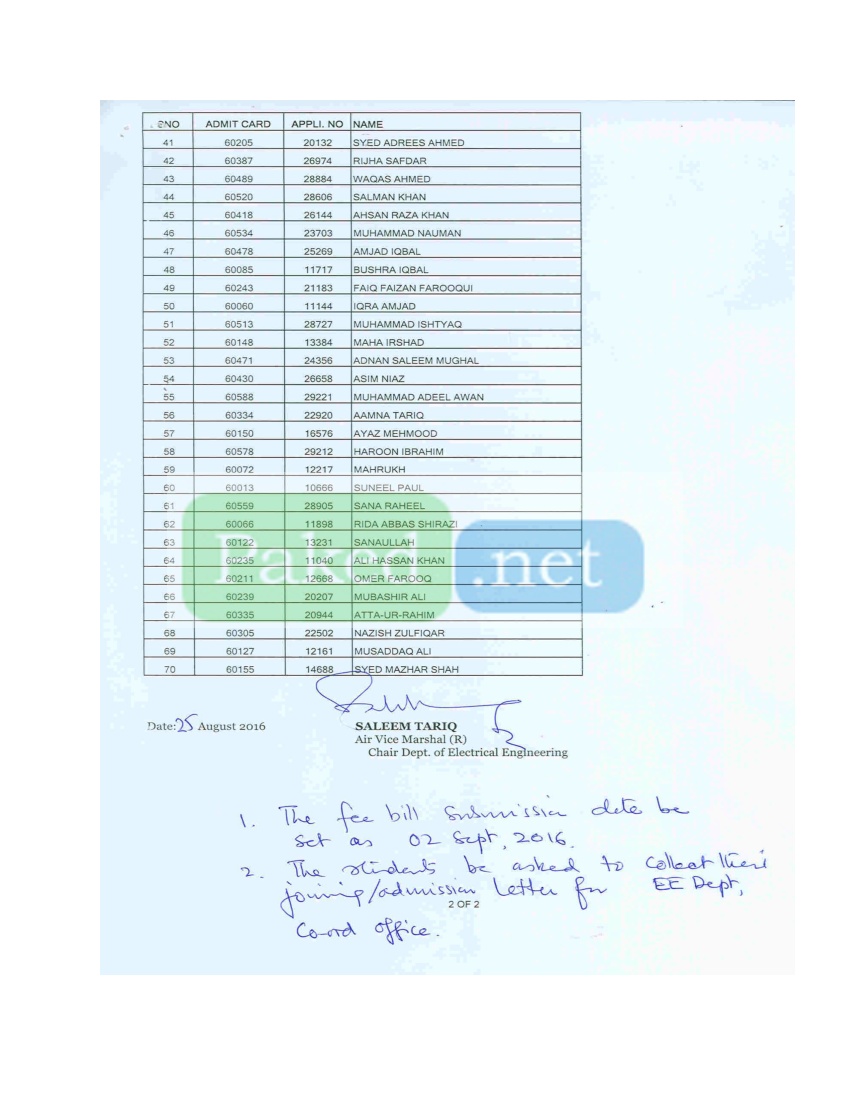 SNO ADMIT CARD APPLI. NO NAME
41 60205 20132 SYED ADREES AHMED
42 60387 26974 RIJHA SAFDAR
43 60489 28884 WAQAS AHMED
44 60520 28606 SALMAN KHAN
45 60418 26144 AHSAN RAZA KHAN
46 60534 23703 MUHAMMAD NAUMAN
47 60478 25269 AMJAD IQBAL
48 60085 11717 BUSHRA IQBAL
49 60243 21183 FAIQ FAIZAN FAROOQUI
50 60060 11144 IQRA AMJAD
51 60513 28727 MUHAMMAD ISHTYAQ
52 60148 13384 MAHA IRSHAD
53 60471 24356 ADNAN SALEEM MUGHAL
54 60430 26658 ASIM NIAZ
55 60588 29221 MUHAMMAD ADEEL AWAN
56 60334 22920 AAMNA TARIQ
57 60150 16576 AYAZ MEHMOOD
58 60578 29212 HAROON IBRAHIM
59 60072 12217 MAHRUKH
60 60013 10666 SUNEEL PAUL
61 60559 28905 SANA RAHEEL
62 60066 11898 RIDA ABBAS SHIRAZI
63 60122 13231 SANAULLAH
64 60235 11040 ALI HASSAN KHAN
65 60211 12668 OMER FAROOQ
66 60239 20207 MUBASHIR ALI
67 60335 20944 ATTA-UR-RAHIM
68 60305 22502 NAZISH ZULFIQAR
69 60127 12161 MUSADDAQ ALI
70 60155 14688 SYED MAZHAR SHAH
Paked .net
Date: 25 August 2016
SALEEM TARIQ
Air Vice Marshal (R)
Chair Dept. of Electrical Engineering
1. The fee bill submission date be
set as 02 Sept, 2016.
2. The students be asked to collect their
joining/admission letter fm EE Dept,
2 OF 2
Co-ord office.